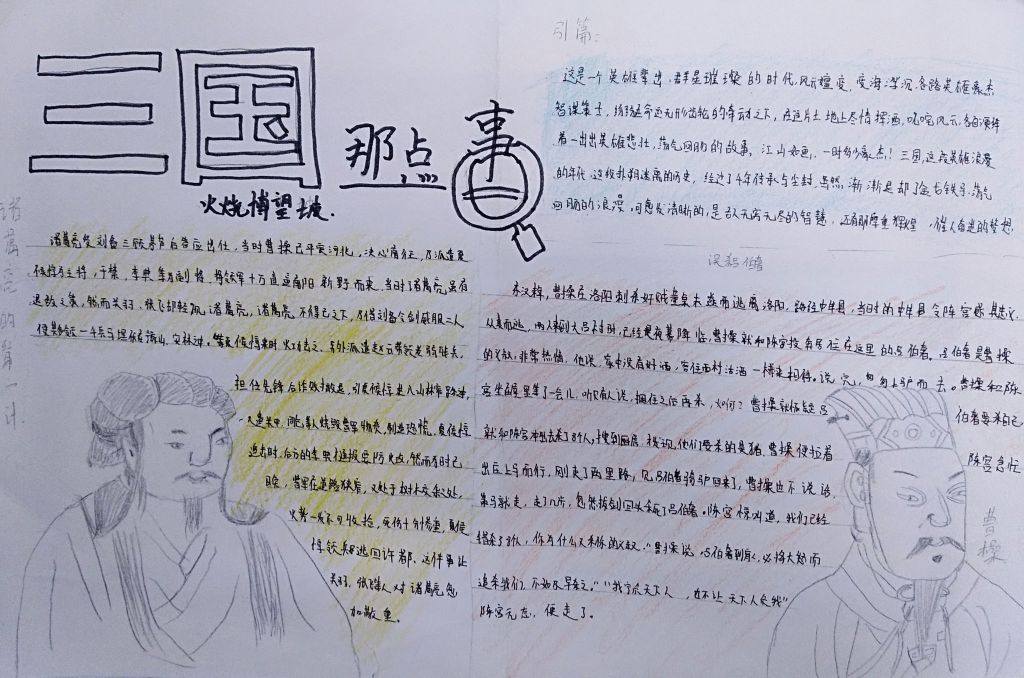 三国
那点事
火烧博望坡.
诸葛亮的第一计.
引篇:
这是一个英雄辈出,群星璀璨的时代,风云嬗变,变海浮沉,各路英雄豪杰
智谋策士,纷纷在命运无形齿轮的牵动之下,在这片土地上尽情挥洒,叱咤风云,各自演绎
着一出出英雄悲壮,荡气回肠的故事,江山如画,一时多少豪杰!三国,这个英雄浪漫
的年代,这段扑朔迷离的历史,经过了千年传承与尘封,当然,渐渐退却了金戈铁马,荡气
回肠的浪漫,同愈发清晰的,是那无穷无尽的智慧,还有那厚重辉煌,催人奋进的梦想.
诸葛亮受刘备三顾茅庐后答应出仕,当时曹操已平定河北,决心南征,乃派遣夏
侯惇为主将,于禁,李典等为副将,将领军十万直逼南阳新野而来,当时诸葛亮虽有
退敌之策,然而关羽,张飞却轻视诸葛亮,诸葛亮不得已之下,乃借刘备令剑威服二人
使其各领一千兵马埋伏在豫山,安林,等夏侯惇来时火攻击之,另外派遣赵云带领老弱残兵,
担任先锋后诈败撤退,引夏侯惇进入山林窄路,
追击时,后方的李典虽提出防火,然而为时已
晚,曹军在道路狭窄,又处于树木交杂之处,
火势一发不可收拾,死伤十分惨重,夏侯
惇领兵逃回许都,这件事让
关羽,张飞等人对诸葛亮愈
加敬重。
误杀伯奢
东汉末,曹操在洛阳刺杀奸贼董卓未遂而逃离洛阳,路经中牟县,当时的中牟县令陈宫感其忠义
从其而逃,两人来到成皋时,已经是夜幕降临,曹操就和陈宫投奔居住在这里的吕伯奢。吕伯奢是曹操
的义叔,非常热情,他说,家中没有好酒,容往西村沽酒一樽来相待。说完,匆匆上驴而去。曹操和陈
宫坐在屋里等了一会儿,听见有人说,捆住之后再杀,如何?曹操就怀疑吕
伯奢要杀自己
就和陈宫冲出去杀了8个人,搜到厨房,发现,他们要杀的是猪,曹操便拉着
陈宫急忙
出庄上马而行,刚走了两里路,见吕伯奢骑驴回来了,曹操也不说话,
策马就走,走了几步,忽然拔剑回头杀了吕伯奢。陈宫惊叫道,我们已经
错杀了8人,你为什么又杀你的义叔?"曹操说,吕伯奢到家,必将大怒而
追杀我们,不如及早杀之。""我宁负天下人,也不让天下人负我"
陈宫无在,便走了。
曹操